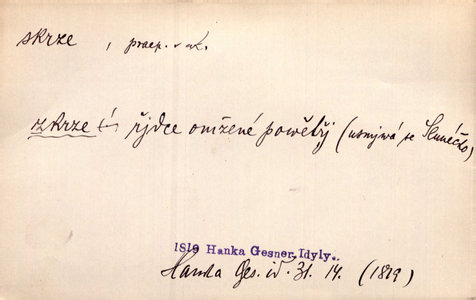 skrze , praep. s ak.
zkrze řjdce omžené powětřj (usmjwá se Slunéčko)
1819 Hanka Gesner, Idyly.
Hanka Ges. id. 31. 14. (1819)